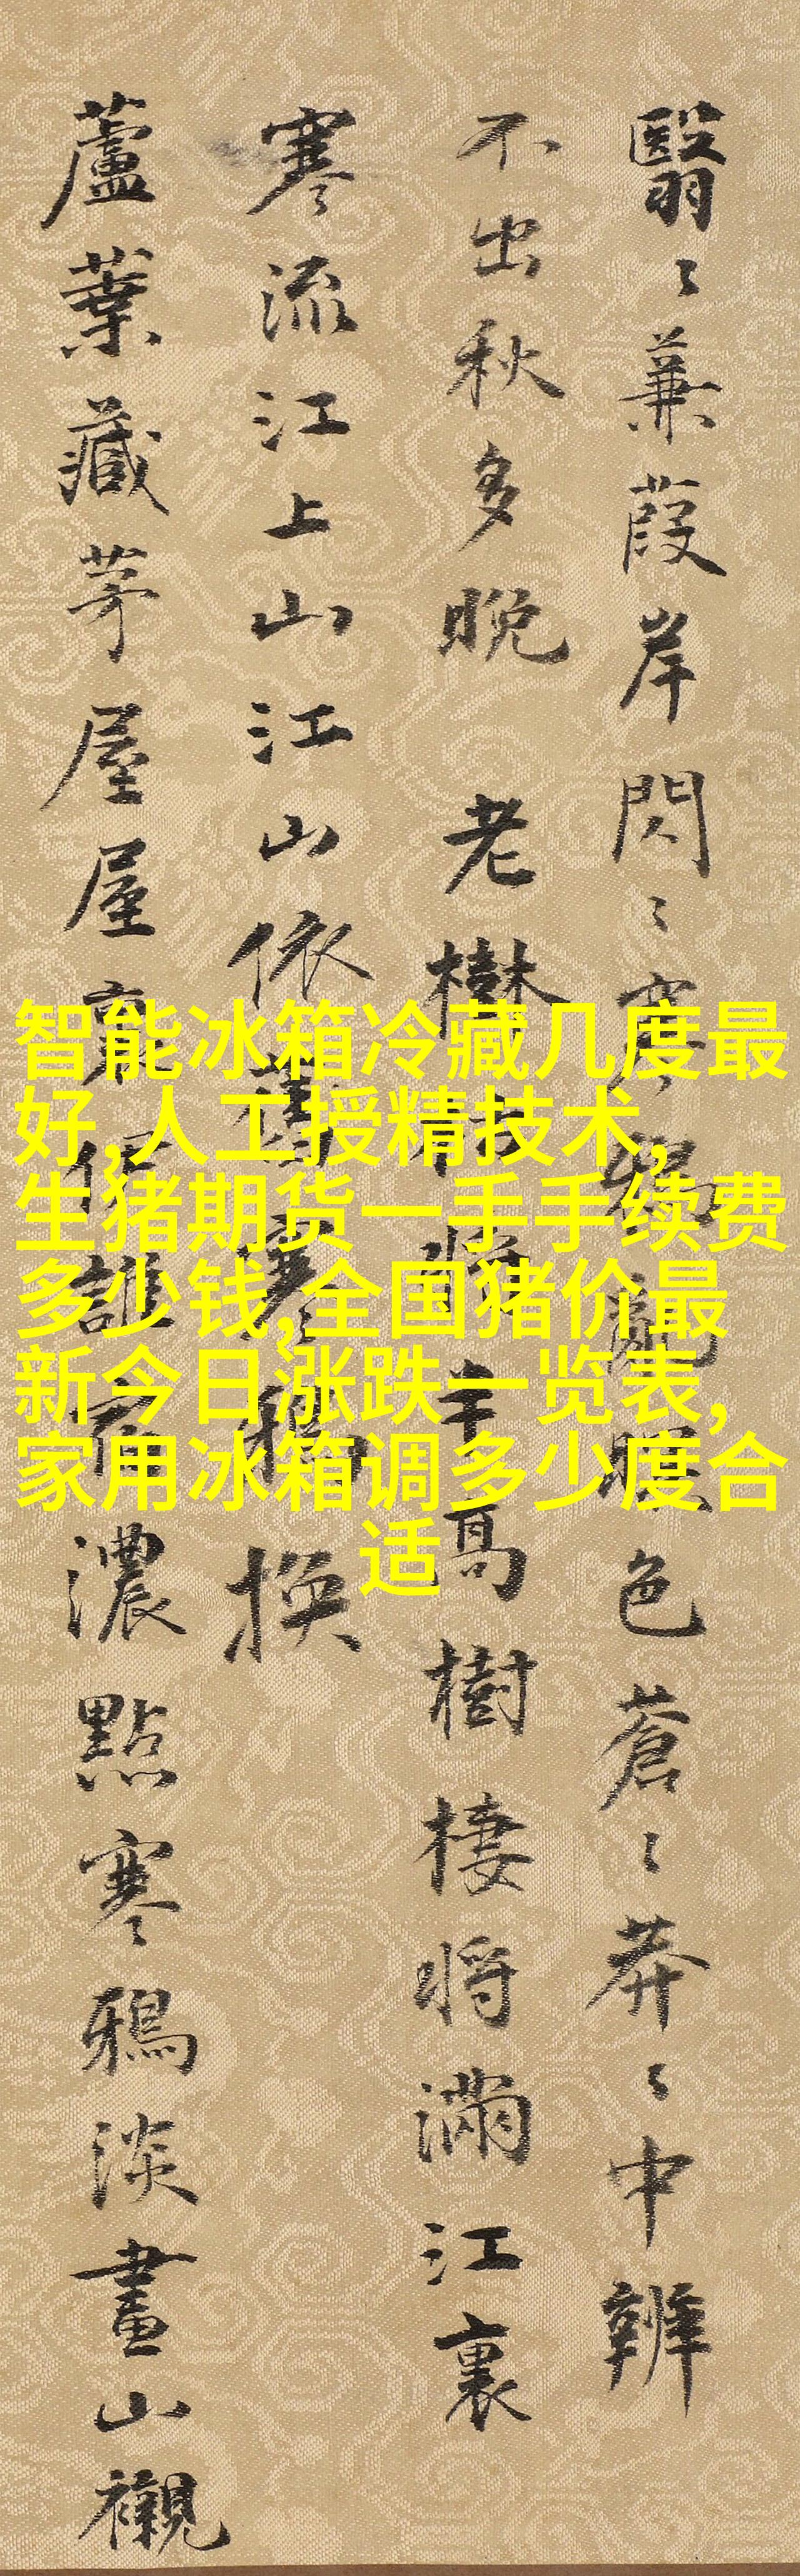 翳〻蒹葭岸閃〻寒鴉亂暝色蒼〻莽〻中辨
不出秋多晚 老樹村將半高樹棲將滿江裏
寒流江上山江山依舊寒鴉換
蘆葉藏茅屋屋裏伊誰宿濃點寒鴉淡畫山襯
智能冰箱冷藏几度最
好,人工授精技术,
生猪期货一手手续费
多少钱,全国猪价最
新今日涨跌一览表,
家用冰箱调多少度合
适